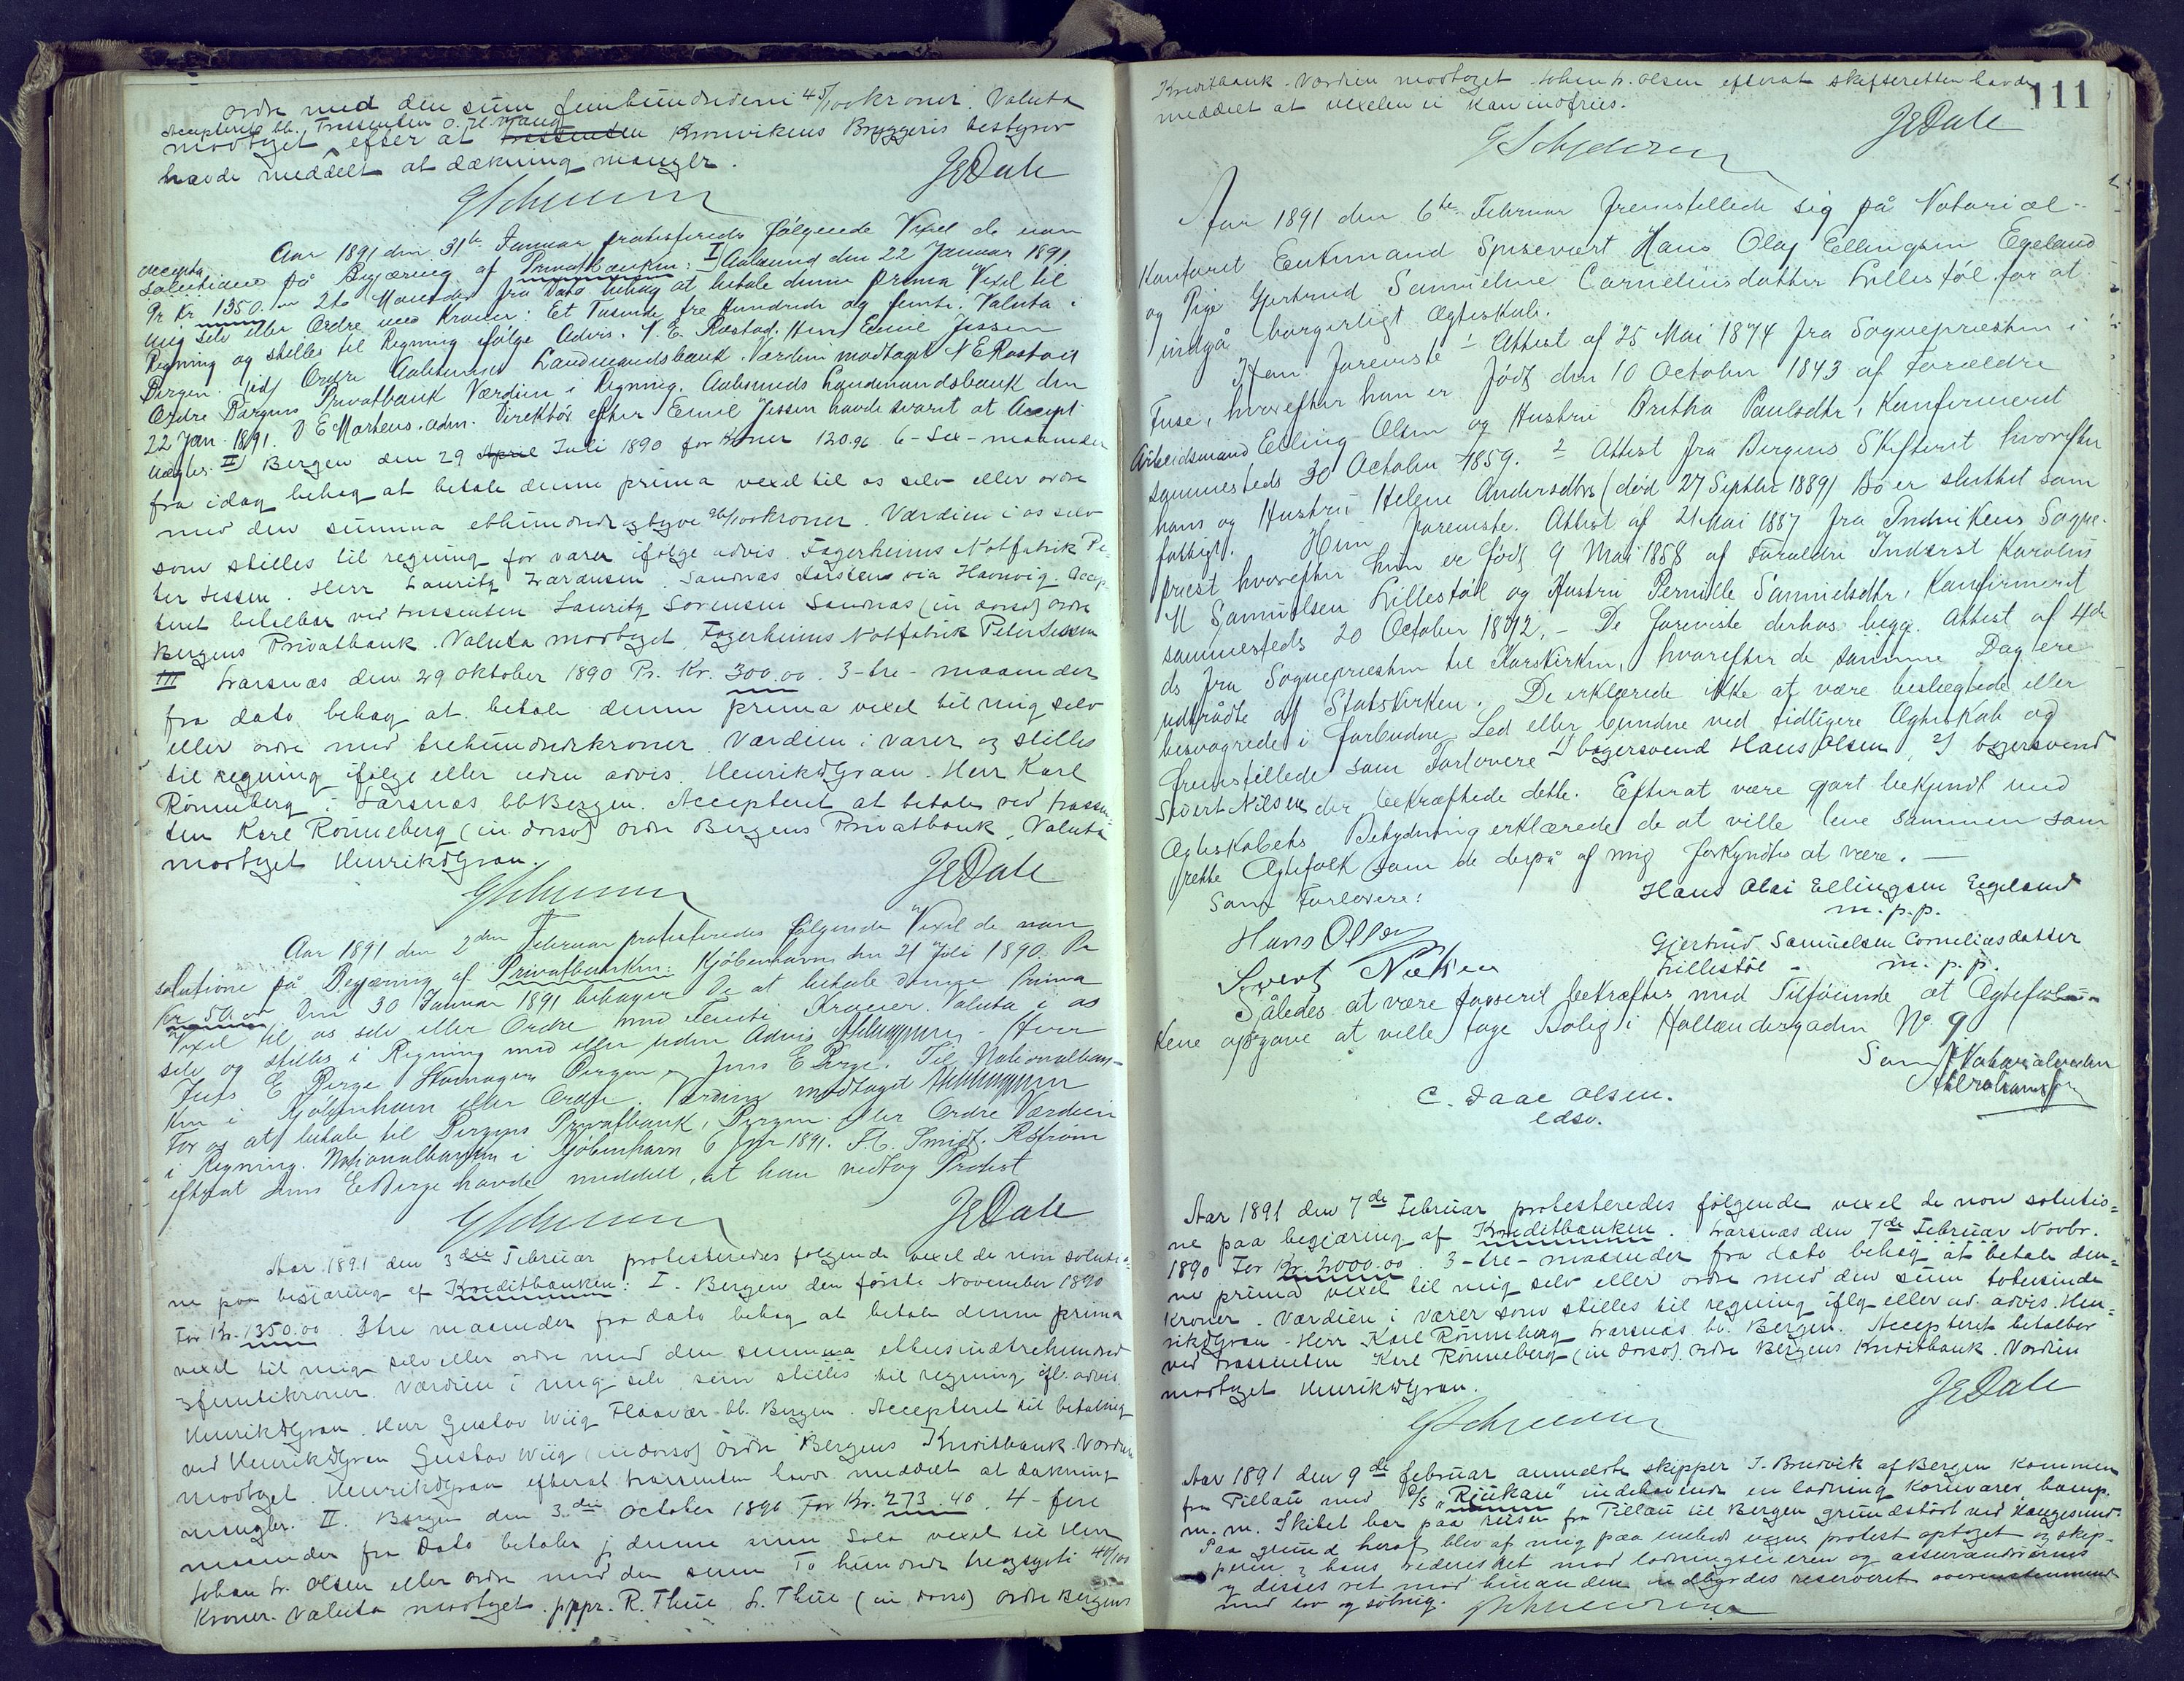 ordre med den sum femhundredeni 45/100 kroner. Valuta
Accepteret bb. Trassenten O. H. Vang
modtaget efter at Trassenten Kronvikens Bryggeris bestyrer
havde meddelt at dækning mangler.
JEDale
Aar 1891 den 31te Januar protesteredes følgende Vexel de non
accepta
solutione på Begjæring af Privatbanken: I) Aalesund den 22 Januar 1891.
Pr Kr 1350.00 2to Maaneder fra Dato behag at betale denne prima Vexel til
mig selv eller Ordre med Kroner: Et Tusinde tre Hundrede og femti. Valuta i
Regning og stilles til Regning ifølge Advis. N. E. Rastad. Herr Emil Jessen
Bergen. Ordre Aalesunds Landmandsbank. Værdien modtaget N E Rastad
Ordre Bergens Privatbank Værdien i Regning. Aalesunds Landmandsbank den
22 Jan. 1891. O E Martens. adm. Direktør efter Emil Jessen havde svaret at Accept
nægtes. II) Bergen den 29 April Juli 1890 for Kroner 120.96. 6-sex-maaneder
fra idag behag at betale denne prima vexel til os selv eller ordre
med den summa ethundredeogtyve 96/100 kroner. Værdien i os selv
som stilles til regning for varer ifølge advis. Fagerheims Notfabrik Pe-
ter Jessen. Herr Lauritz Sørensen. Sandnæs Karstens via Havnvig. Accep
teret betalbar ved trassenten Lauritz Sørensen Sandnæs (in dorso) ordre
Bergens Privatbank. Valuta modtaget. Fagerheims Notfabrik Peter Jessen
III Larsnæs den 29 oktober 1890 Pr. Kr. 300.00. 3-tre-maaneder
fra dato behag at betale denne prima vexel til mig selv
eller ordre med trehundredekroner. Værdien i varer og stilles
til regning ifølge eller uden advis. Henrik d Gran. Herr Karl
Rønneberg i Larsnæs bb Bergen. Accepteret at betale ved trassen
ten Karl Rønneberg (in dorso) ordre Bergens Privatbank, Valuta
modtaget Henrik d Gran.
JEDale
Aar 1891 den 2den Februar protesteredes følgende Vexel de non
solutione på Begjæring af Privatbanken: Kjøbenhavn den 21 Juli 1890. Pr
Kr 50.00 Den 30 Januar 1891 behager De at betale denne Prima
Vexel til os selv eller Ordre med Femti Kroner. Valuta i os
selv og stilles i Regning med eller uden Advis. Herr
Jens E Berge Bergen Jens E Berge. Til Nationalban-
ken i Kjøbenhavn eller Ordre. Værdien modtaget
For og at betale til Bergens Privatbank, Bergen eller Ordre Værdien
i Regning. Nationalbanken i Kjøbenhavn 6 Jan 1891.
efterat Jens E Berge havde meddelt, at han vedtog Protest
JEDale
Aar 1891 den 3die Februar protesteredes følgende vexel de non solutio
ne paa begjæring af Kreditbanken: I. Bergen den første November 1890
For Kr. 1350.00. 3 tre maaneder fra dato behag at betale denne prima
vexel til mig selv eller ordre med den summa ettusindetrehundred
ogfemtikroner. Værdien i mig selv som stilles til regning ifl. advis
Henrik d Gran. Herr Gustav Wiig Flaavær bb. Bergen. Accepteret til betaling
ved Henrik d Gran Gustav Wiig (in dorso) Ordre Bergens Kreditbank. Værdien
modtaget. Henrik d Gran efterat trassenten havde meddelt at dækning
mangler. II. Bergen den 3die October 1890 For Kr. 273.40. 4-fire
maaneder fra Dato betaler j denne min sola vexel til Herr
Johan Fr. Olsen eller ordre med den sum To hundrede treogsytti 40/100
Kroner. Valuta modtaget. pppr. R. Thue. Fr. Thue (in dorso) Ordre Bergens
111
Kreditbank. Værdien modtaget. Johan Fr. Olsen efterat skifteretten havde
meddelt at vexelen ei kan indfries.
JEDale
Aar 1891 den 6te Februar fremstillede sig på Notarial-
kontoret Enkemand Spisevært Hans Olai Ellingsen Egeland
og Pige Gjertrud Samueline Corneliusdatter Lillestøl for at
indgå borgerligt Ægteskab.
Han foreviste 1 Attest af 25 Mai 1874 fra Sognepresten i
Fuse, hvorefter han er født den 10 October 1843 af Forældre
Arbeidsmand Elling Olsen og Hustru Britha Paulsdtr, Konfirmeret
sammesteds 30 October 1859. 2 Attest fra Bergens Skifteret hvorefter
hans og Hustru Helene Andersdtrs (død 27 Septbr 1889) Bo er sluttet som
fattigt. Hun foreviste. Attest af 21 Mai 1887 fra Indvikens Sogne-
prest hvorefter hun er født 9 Mai 1858 af Forældre Inderst Karolus
M Samuelsen Lillestøl og Hustru Pernille Samuelsdtr, Konfirmeret
sammesteds 20 October 1872. – De foreviste derhos begge Attest af 4de
ds fra Sognepresten til Korskirken, hvorefter de samme Dag ere
udtrådte af Statskirken. De erklærede ikke at være beslægtede eller
besvogrede i forbudne Led eller bundne ved tidligere Ægteskab og
fremstillede som Forlovere 1) bagersvend Hans Olsen, 2) bagersvend
Sivert Nilsen der bekræftede dette. Efterat være gjort bekjendt med
Ægteskabets Betydning erklærede de at ville leve sammen som
rette Ægtefolk som de derpå af mig forkyndtes at være. —
Som Forlovere:
Hans Olai Ellingsen Egeland
m. p. p.
Hans Olsen
Gjertrud Samueline Corneliasdatter
Sivert Nielsen
Lillestøl - m. p. p.
Således at være passeret bekræftes med Tilføiende at Ægtefol-
kene opgave at ville tage Bolig i Hollændergaden No. 9
Som Notarialvidner
C. Daae Olsen.
edsv.
Aar 1891 den 7de Februar protesteredes følgende vexel de non solutio=
ne paa begjæring af Kreditbanken. Larsnæs den 7de Februar Novbr.
1890 For Kr. 2000.00. 3-tre-maaneder fra dato behag at betale den=
ne prima vexel til mig selv eller ordre med den sum totusinde
Kroner. Værdien i varer som stilles til regning iflg eller ud. advis. Hen=
rik d Gran. Herr Karl Rønneberg Larsnæs bb. Bergen. Accepteret betalbar
ved trassenten Karl Rønneberg (in dorso). ordre Bergens Kreditbank. Værdien
modtaget Henrik d Gran.
JEDale
Aar 1891 den 9de februar anmeldte skipper J. Brudvik af Bergen kommen
fra Pillau med D/S "Rjukan" indehavende en ladning kornvarer, hamp.
m. m. Skibet har paa reisen fra Pillau til Bergen grundstødt ved Haugesund.
Paa grund heraf blev af mig paa embeds vegne protest optaget og skip-
peren og hans rederies ret mod ladningseieren og assurandørernes
og disses ret mod hinanden indbyrdes reserveret overensstemmende
med lov og sølovg.